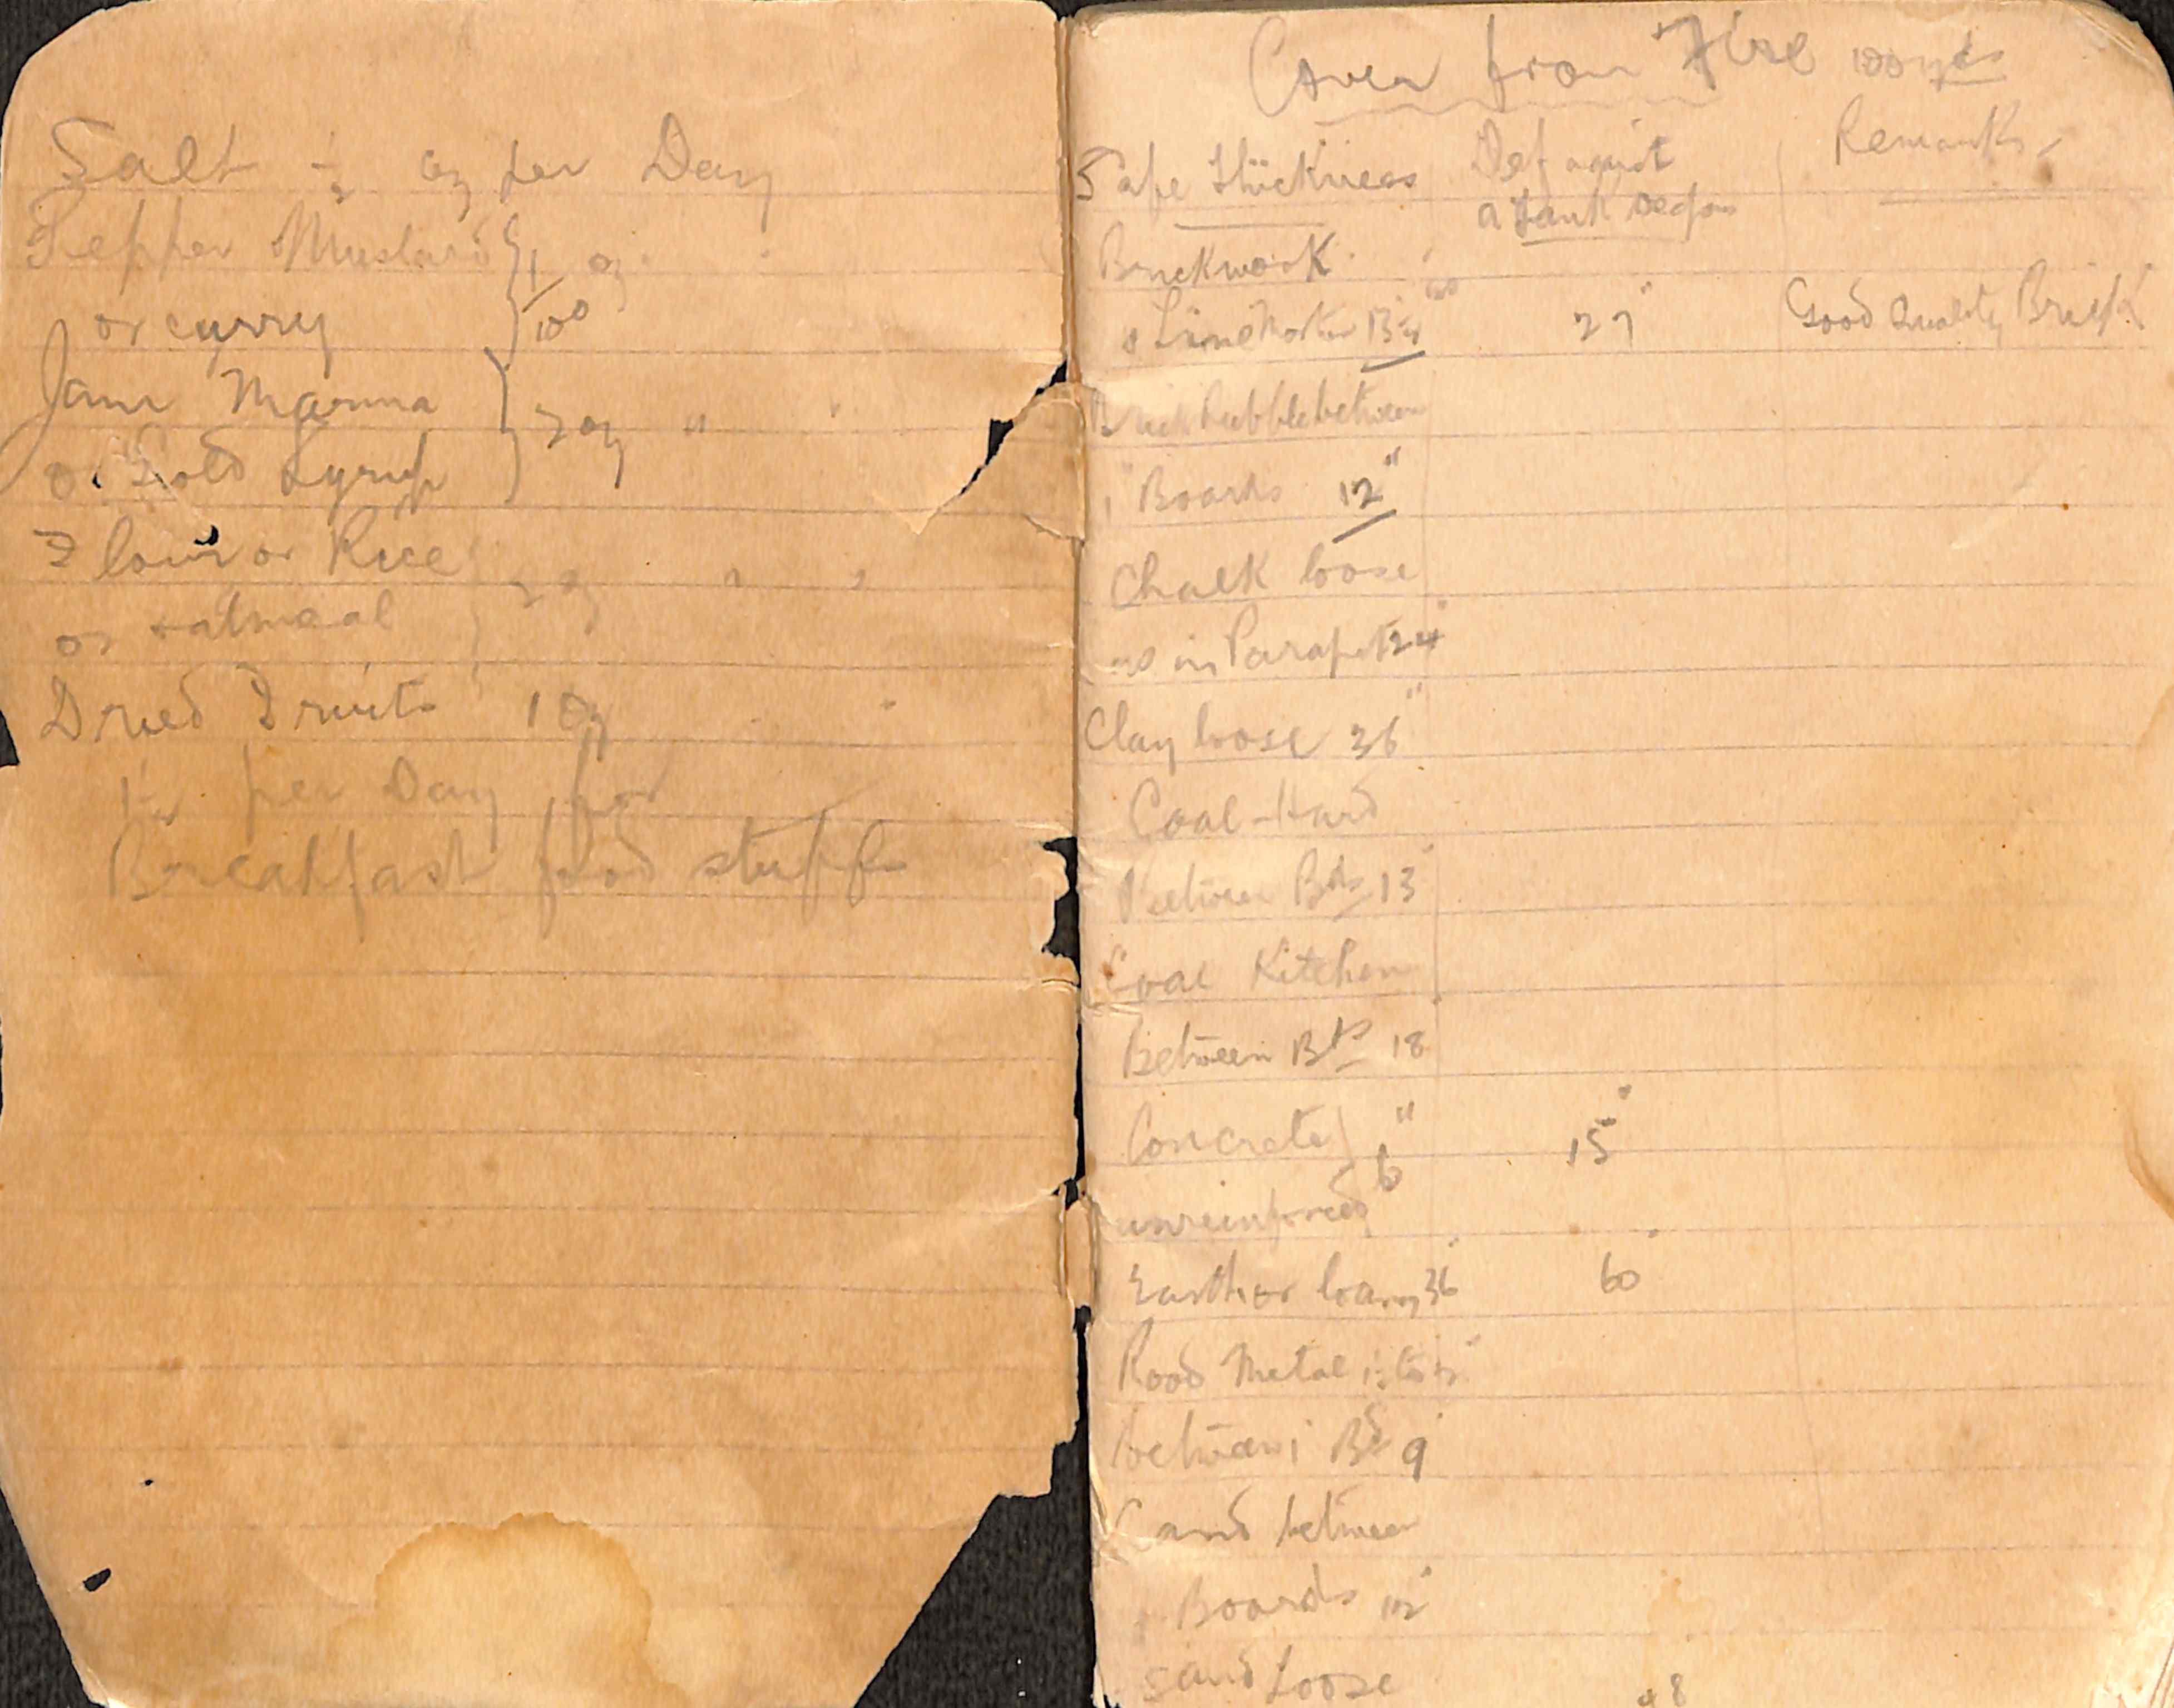 Salt ½ oz per Day
Pepper Mustard } 1/100 oz " "
or curry
Jam Marma } 2 oz " "
or Gold Syrup
Flour or Rice } 2 oz " "
or oatmeal
Dried Fruits 1 oz " "
per Day for
Breakfast food stuffs
Cover from Fire 100 yds
Safe Thickness Def against Remarks
a tank
Brickwork
Lime Mortar 13½" 27" Good Quality Brick
Brick Rubble between
1" Boards 12"
Chalk loose
as in Parapet 24"
Clay loose 36"
Coal-Hard
Between Bds 13"
Coal Kitchen
Between Bds 18
Concrete } 6" 15"
unreinforced
Earth or loam 36" 60"
Road Metal
between 1" Bds 9"
Sand between
1" Boards 12"
Sand Loose 48